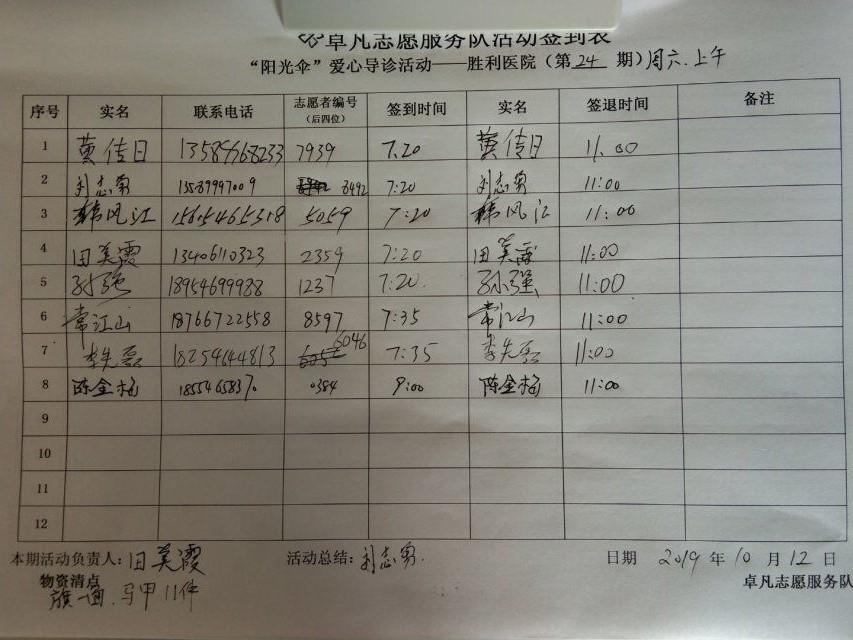 卓凡志愿服务队活动签到表
“阳光伞”爱心导诊活动——胜利医院（第24期）周六.上午
序号 实名 联系电话 志愿者编号（后四位） 签到时间 实名 签退时间 备注
1 黄传日 13589968233 7939 7.20 黄传日 11.00
2 刘志勇 13589997009 8492 7:20 刘志勇 11:00
3 韩风江 15605465318 5059 7:20 韩风江 11:00
4 田美霞 13406110323 2359 7:20 田美霞 11:00
5 孙强 18954699988 1237 7:20 孙强 11:00
6 常江山 18766722558 8597 7:35 常江山 11:00
7 李先磊 18254644813 6046 7:35 李先磊 11:00
8 陈金梅 0384 9:00 陈金梅 11:00
9
10
11
12
本期活动负责人：田美霞 活动总结：刘志勇. 日期 2019年10月12日
物资清点 卓凡志愿服务队
旗一面.马甲11件